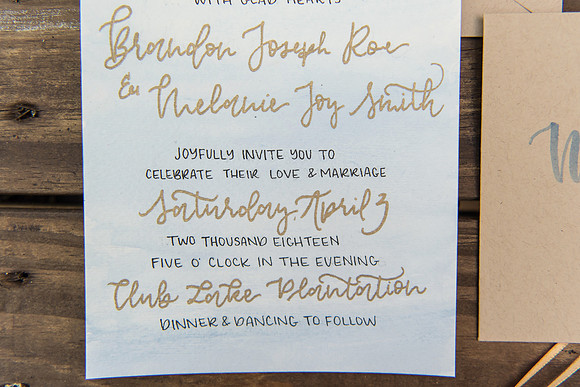 WITH GLAD HEARTS
Brandon Joseph Roe
& Melanie Joy Smith
JOYFULLY INVITE YOU TO
CELEBRATE THEIR LOVE & MARRIAGE
Saturday, April 3
TWO THOUSAND EIGHTEEN
FIVE O' CLOCK IN THE EVENING
Club Lake Plantation
DINNER & DANCING TO FOLLOW